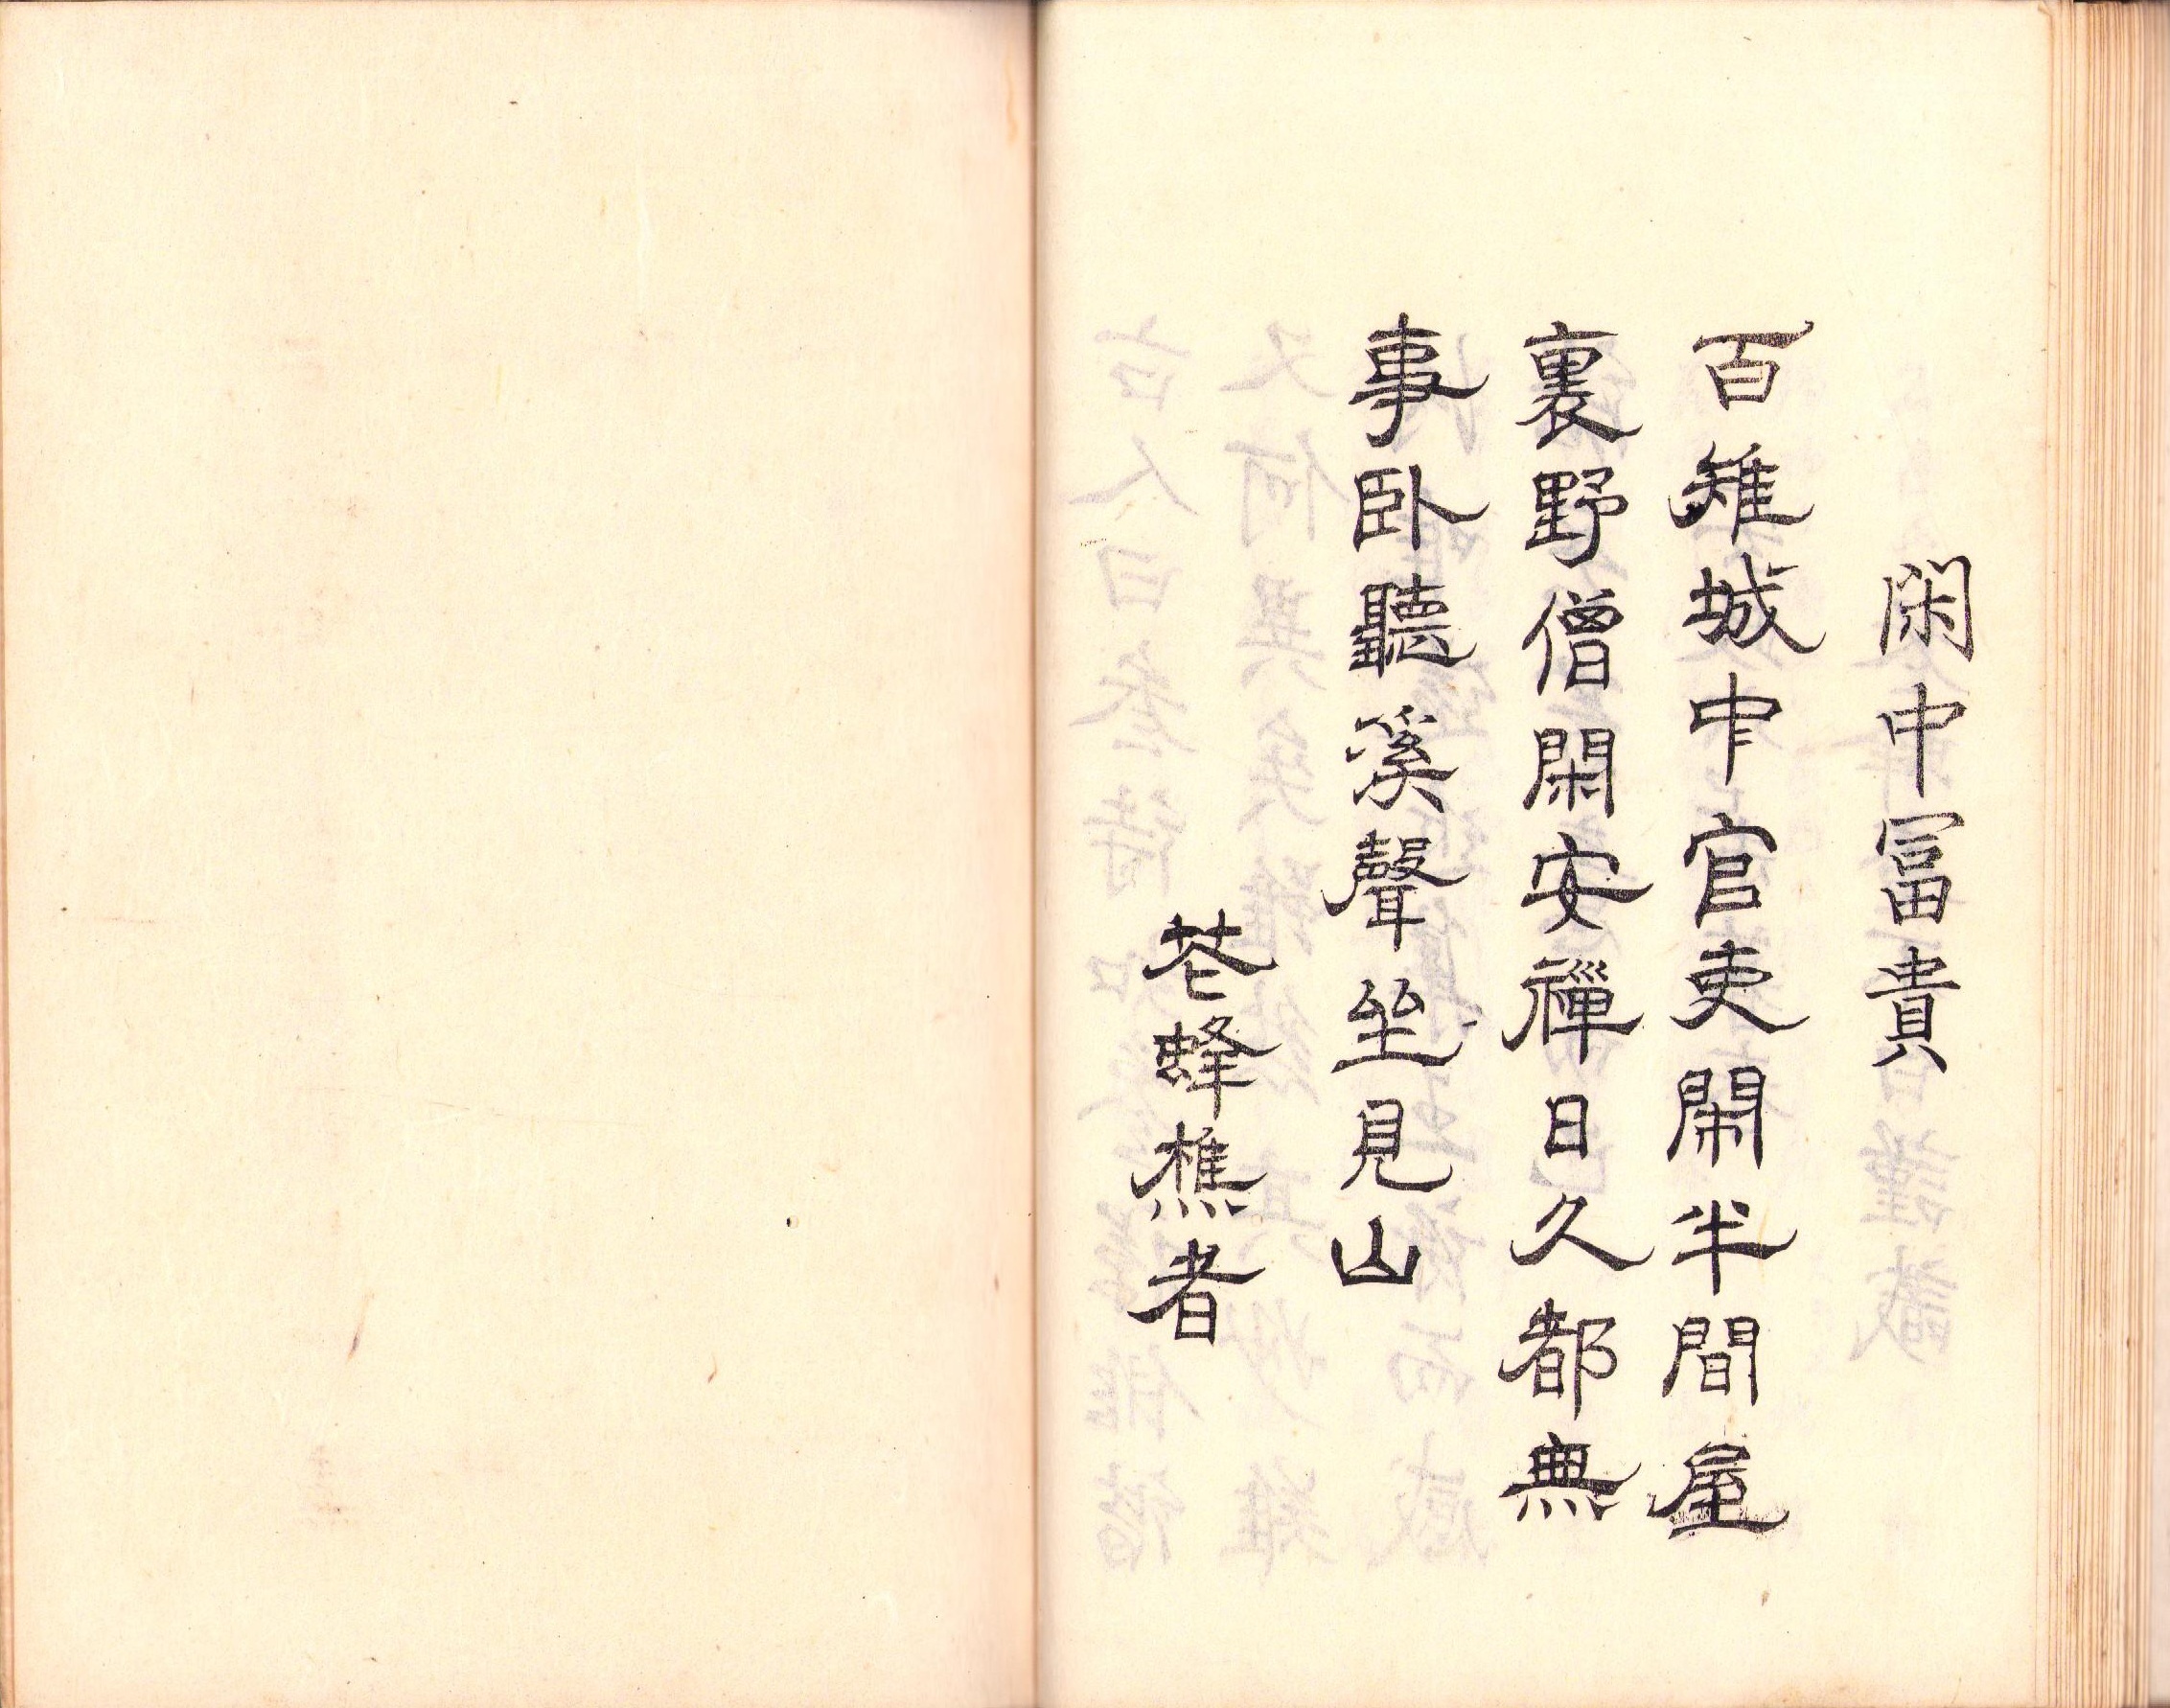 閑中冨貴
百雉城中官吏閑半間屋
裏野僧閑安禪日久都無
事臥聽溪聲坐見山
蜂樵者